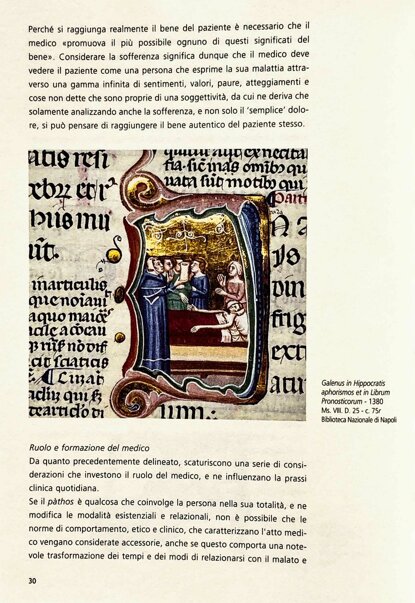 Perché si raggiunga realmente il bene del paziente è necessario che il
medico «promuova il più possibile ognuno di questi significati del
bene». Considerare la sofferenza significa dunque che il medico deve
vedere il paziente come una persona che esprime la sua malattia attra-
verso una gamma infinita di sentimenti, valori, paure, atteggiamenti e
cose non dette che sono proprie di una soggettività, da cui ne deriva che
solamente analizzando anche la sofferenza, e non solo il ‘semplice’ dolo-
re, si può pensare di raggiungere il bene autentico del paziente stesso.
Galenus in Hippocratis
aphorismos et in Librum
Pronosticorum - 1380
Ms. VIII. D. 25 - c. 75r
Biblioteca Nazionale di Napoli
Ruolo e formazione del medico
Da quanto precedentemente delineato, scaturiscono una serie di consi-
derazioni che investono il ruolo del medico, e ne influenzano la prassi
clinica quotidiana.
Se il pàthos è qualcosa che coinvolge la persona nella sua totalità, e ne
modifica le modalità esistenziali e relazionali, non è possibile che le
norme di comportamento, etico e clinico, che caratterizzano l'atto medi-
co vengano considerate accessorie, anche se questo comporta una note-
vole trasformazione dei tempi e dei modi di relazionarsi con il malato e
30